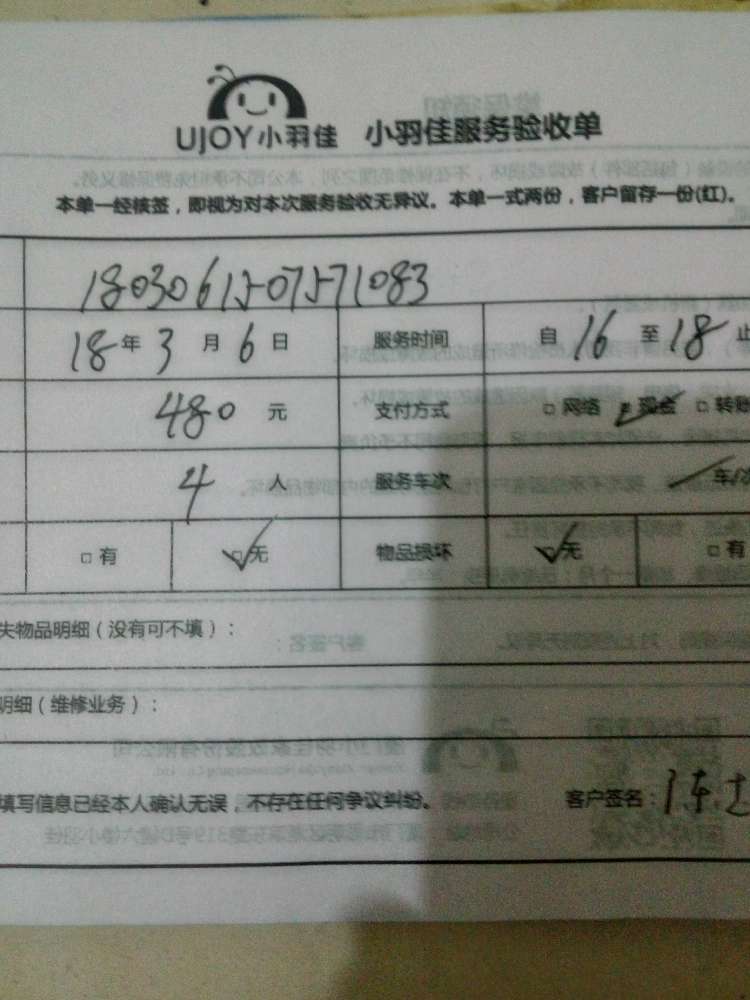 UJOY小羽佳 小羽佳服务验收单
本单一经核签，即视为对本次服务验收无异议。本单一式两份，客户留存一份(红)。
1803061507571083
18年3月6日 服务时间 自16至18止
480元 支付方式 □网络 □现金 □转账
4人 服务车次 车/次
□有 □无 物品损坏 □无 □有
失物品明细（没有可不填）：
明细（维修业务）：
填写信息已经本人确认无误，不存在任何争议纠纷。 客户签名：陈